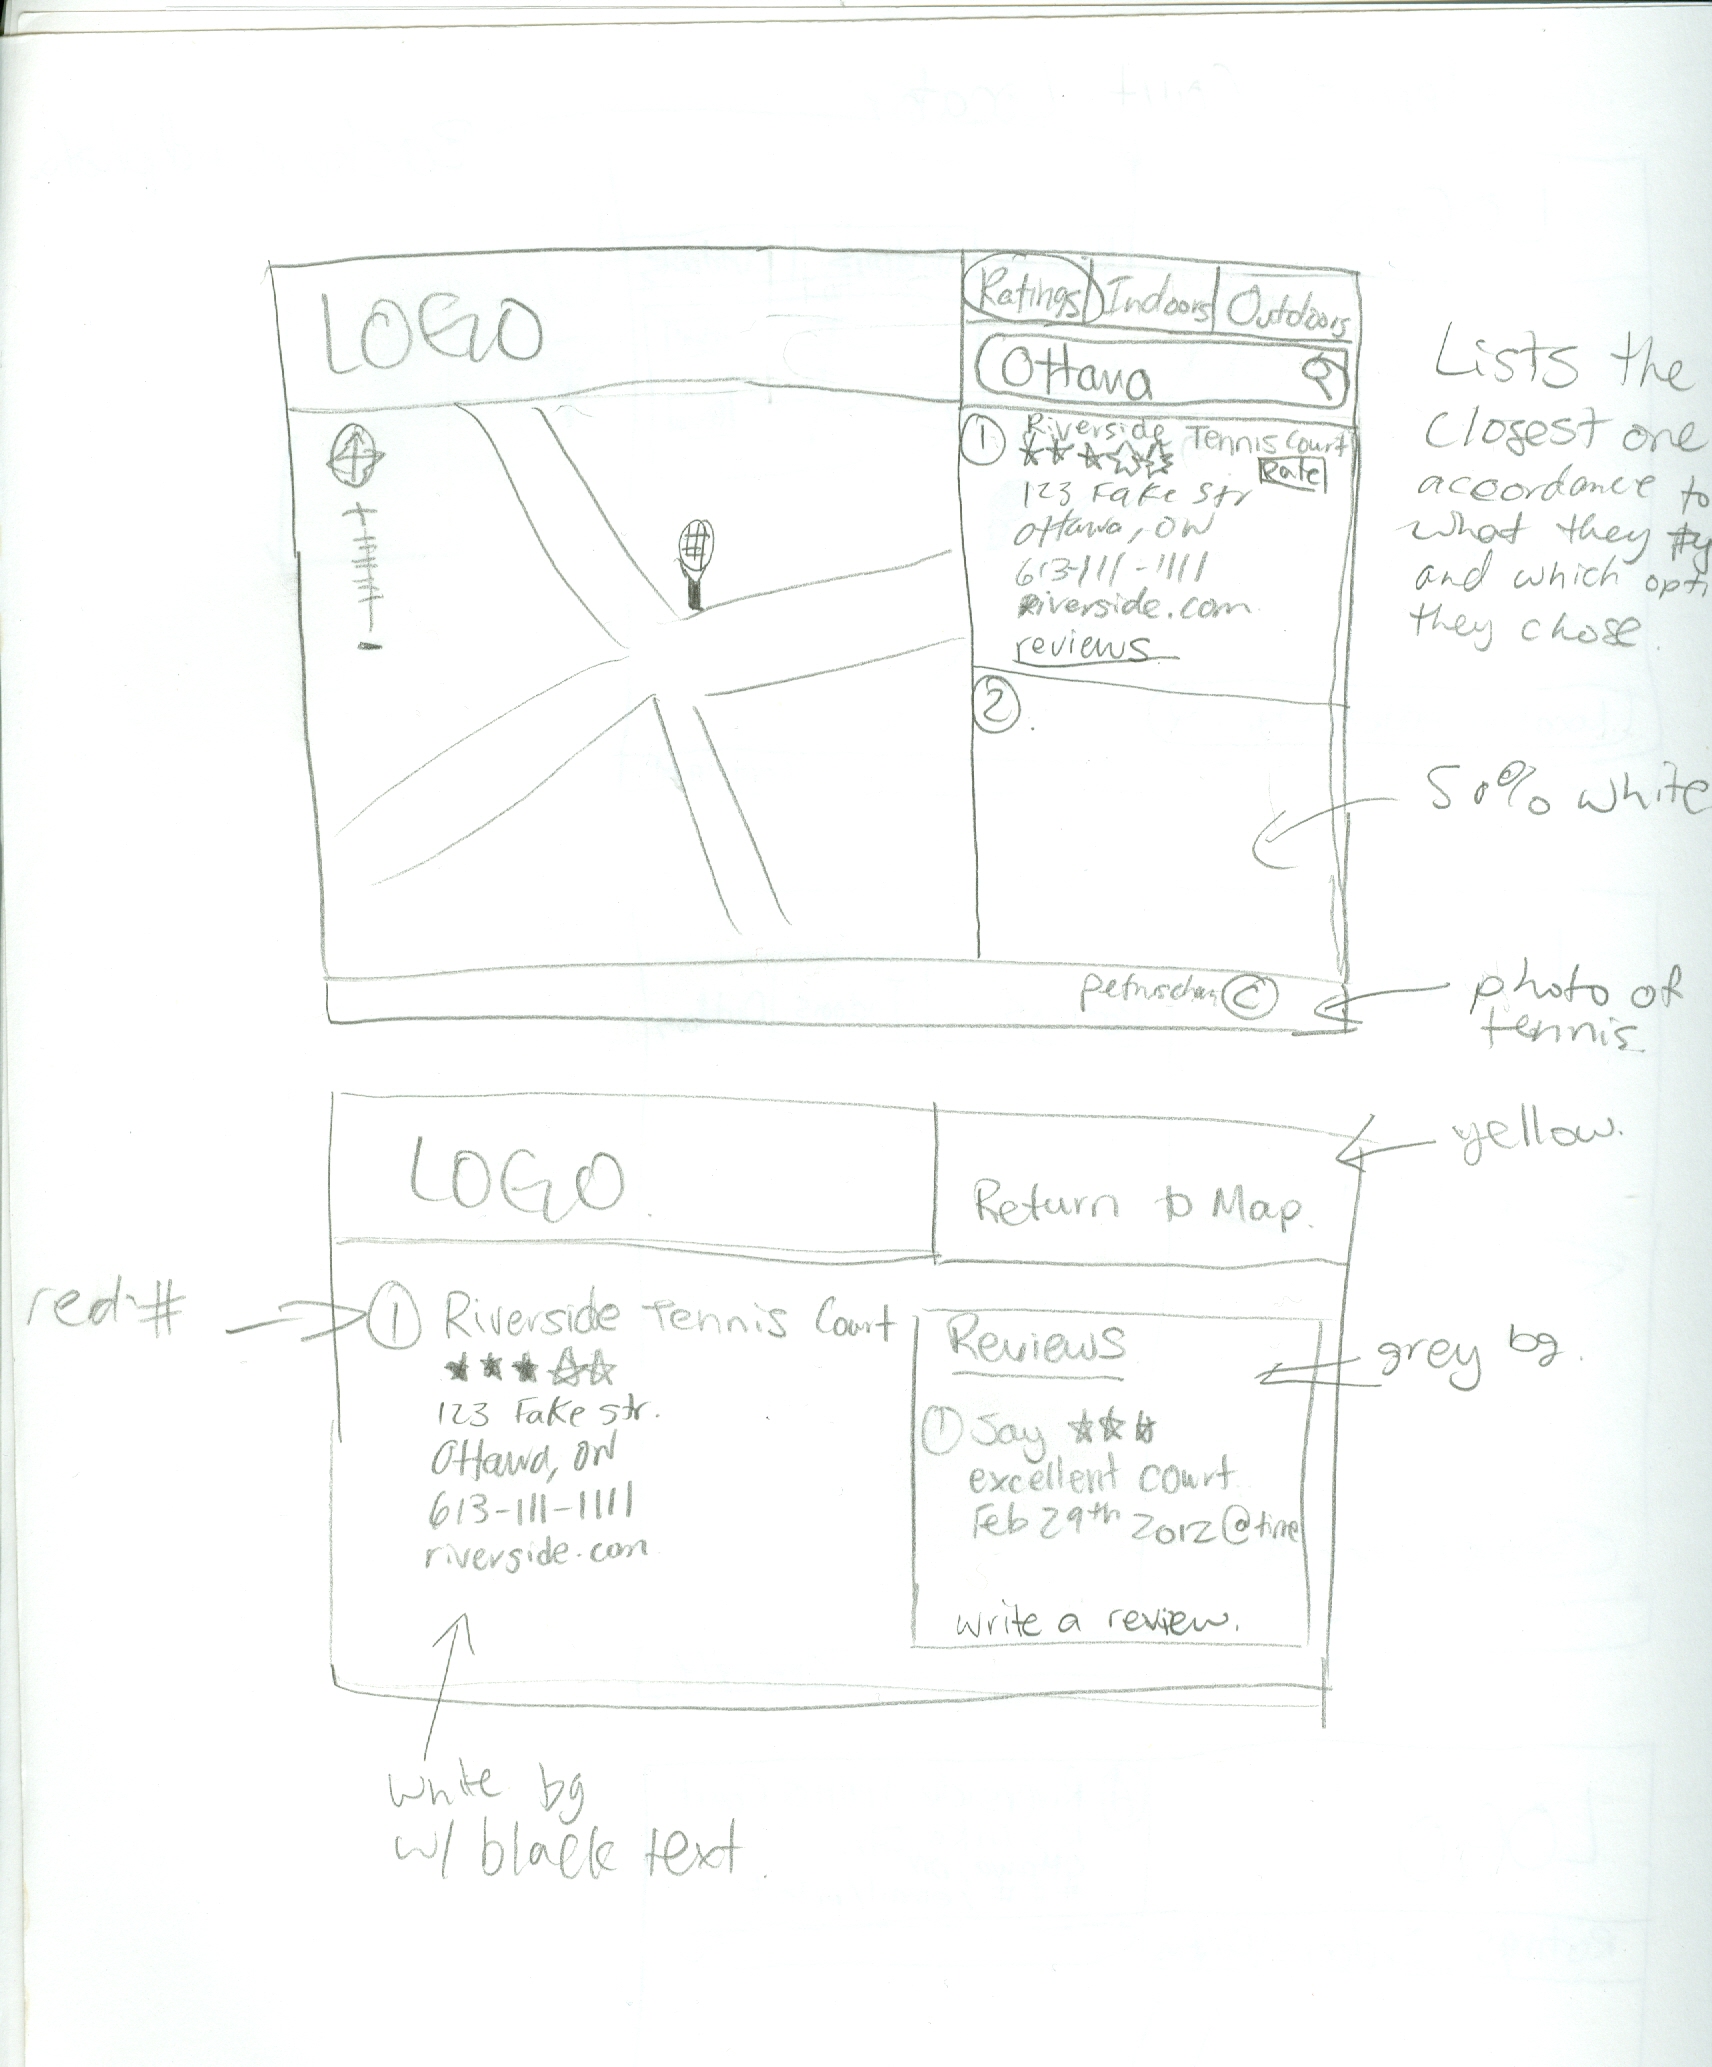 LOGO
Ratings Indoors Outdoors
Ottawa
1 Riverside Tennis Court
Rate
123 Fake Str
Ottawa, ON
613-111-1111
Riverside.com
reviews
2
Lists the
closest one
accordance to
what they
and which
they chose.
50% white
©
photo of
tennis
LOGO
Return to Map.
yellow.
red #
1 Riverside Tennis Court
123 Fake Str.
Ottawa, ON
613-111-1111
riverside.com
Reviews
grey bg.
1 Jay
excellent court
Feb 29th 2012 @ time
write a review.
white bg
w/ black text.